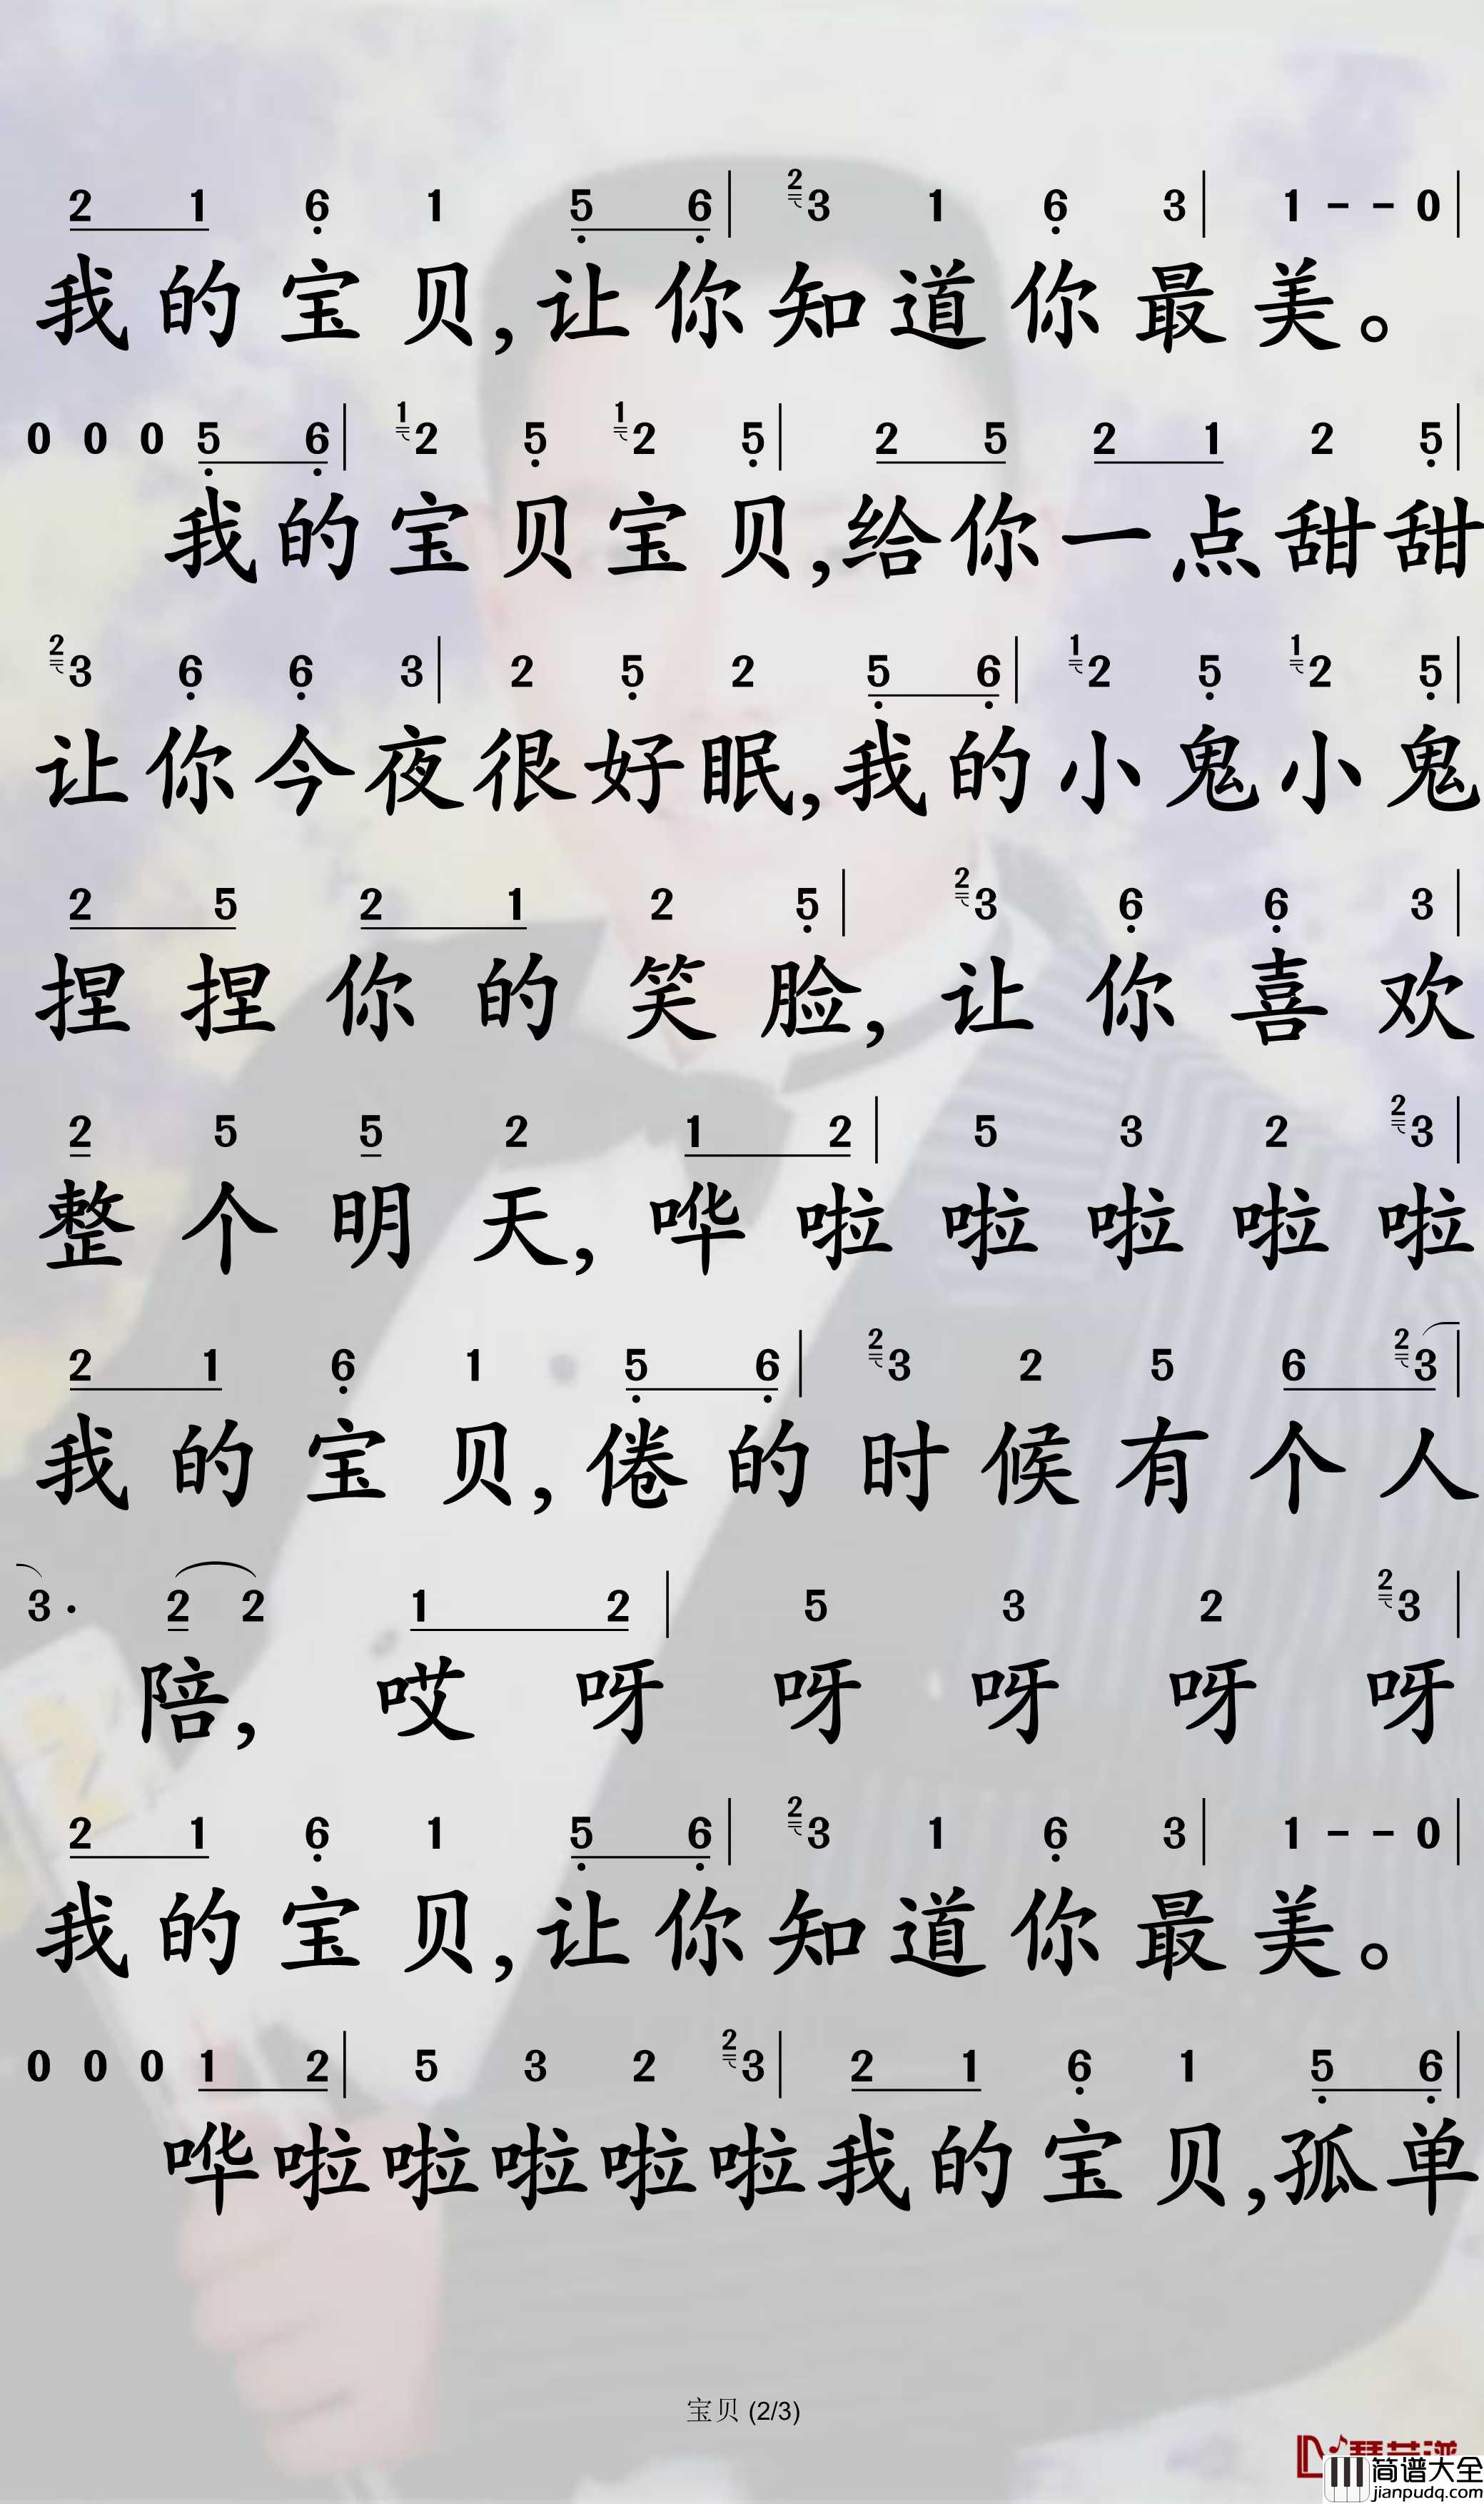 2 1 6 1 5 6 | 2 3 1 6 3 | 1 - - 0 |
我的宝贝,让你知道你最美。
0 0 0 5 6 | 1 2 5 1 2 5 | 2 5 2 1 2 5 |
我的宝贝宝贝,给你一点甜甜
2 3 6 6 3 | 2 5 2 5 6 | 1 2 5 1 2 5 |
让你今夜很好眠,我的小鬼小鬼
2 5 2 1 2 5 | 2 3 6 6 3 |
捏捏你的笑脸,让你喜欢
2 5 5 2 1 2 | 5 3 2 2 3 |
整个明天,哗啦啦啦啦啦
2 1 6 1 5 6 | 2 3 2 5 6 2 3 |
我的宝贝,倦的时候有个人
3 · 2 2 1 2 | 5 3 2 2 3 |
陪,哎呀呀呀呀呀
2 1 6 1 5 6 | 2 3 1 6 3 | 1 - - 0 |
我的宝贝,让你知道你最美。
0 0 0 1 2 | 5 3 2 2 3 | 2 1 6 1 5 6 |
哗啦啦啦啦啦我的宝贝,孤单
宝贝 (2/3)
简谱大全
jianpudq.com